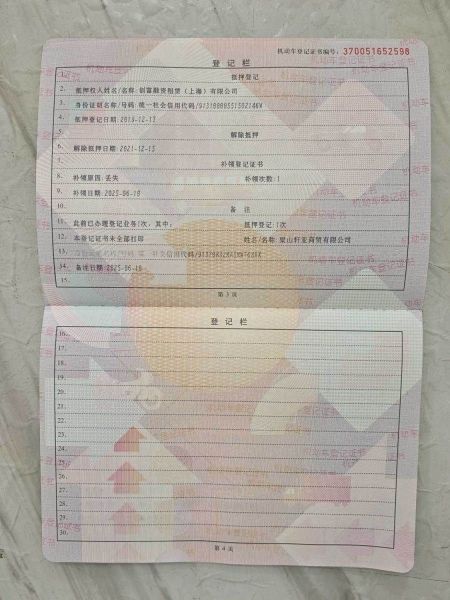 机动车登记证书编号: 370051652598
登记栏
1. 抵押登记
2. 抵押权人姓名/名称: 创富融资租赁(上海)有限公司
3. 身份证明名称/号码: 统一社会信用代码/
4. 抵押登记日期:2019-12-13
5. 解除抵押
6. 解除抵押日期:2021-12-15
7. 补领登记证书
8. 补领原因:丢失 补领次数:1
9. 补领日期:2025-06-18
10. 备注
此前已办理登记业务1次, 其中: 抵押登记1次
12. 本登记证书未全部打印 姓名/名称: 梁山轩亚商贸有限公司
13.
14. 备注日期:2025-06-18
15.
第 3 页
登记栏
16.
17.
18.
19.
20.
21.
22.
23.
24.
25.
26.
27.
28.
29.
30.
第 4 页